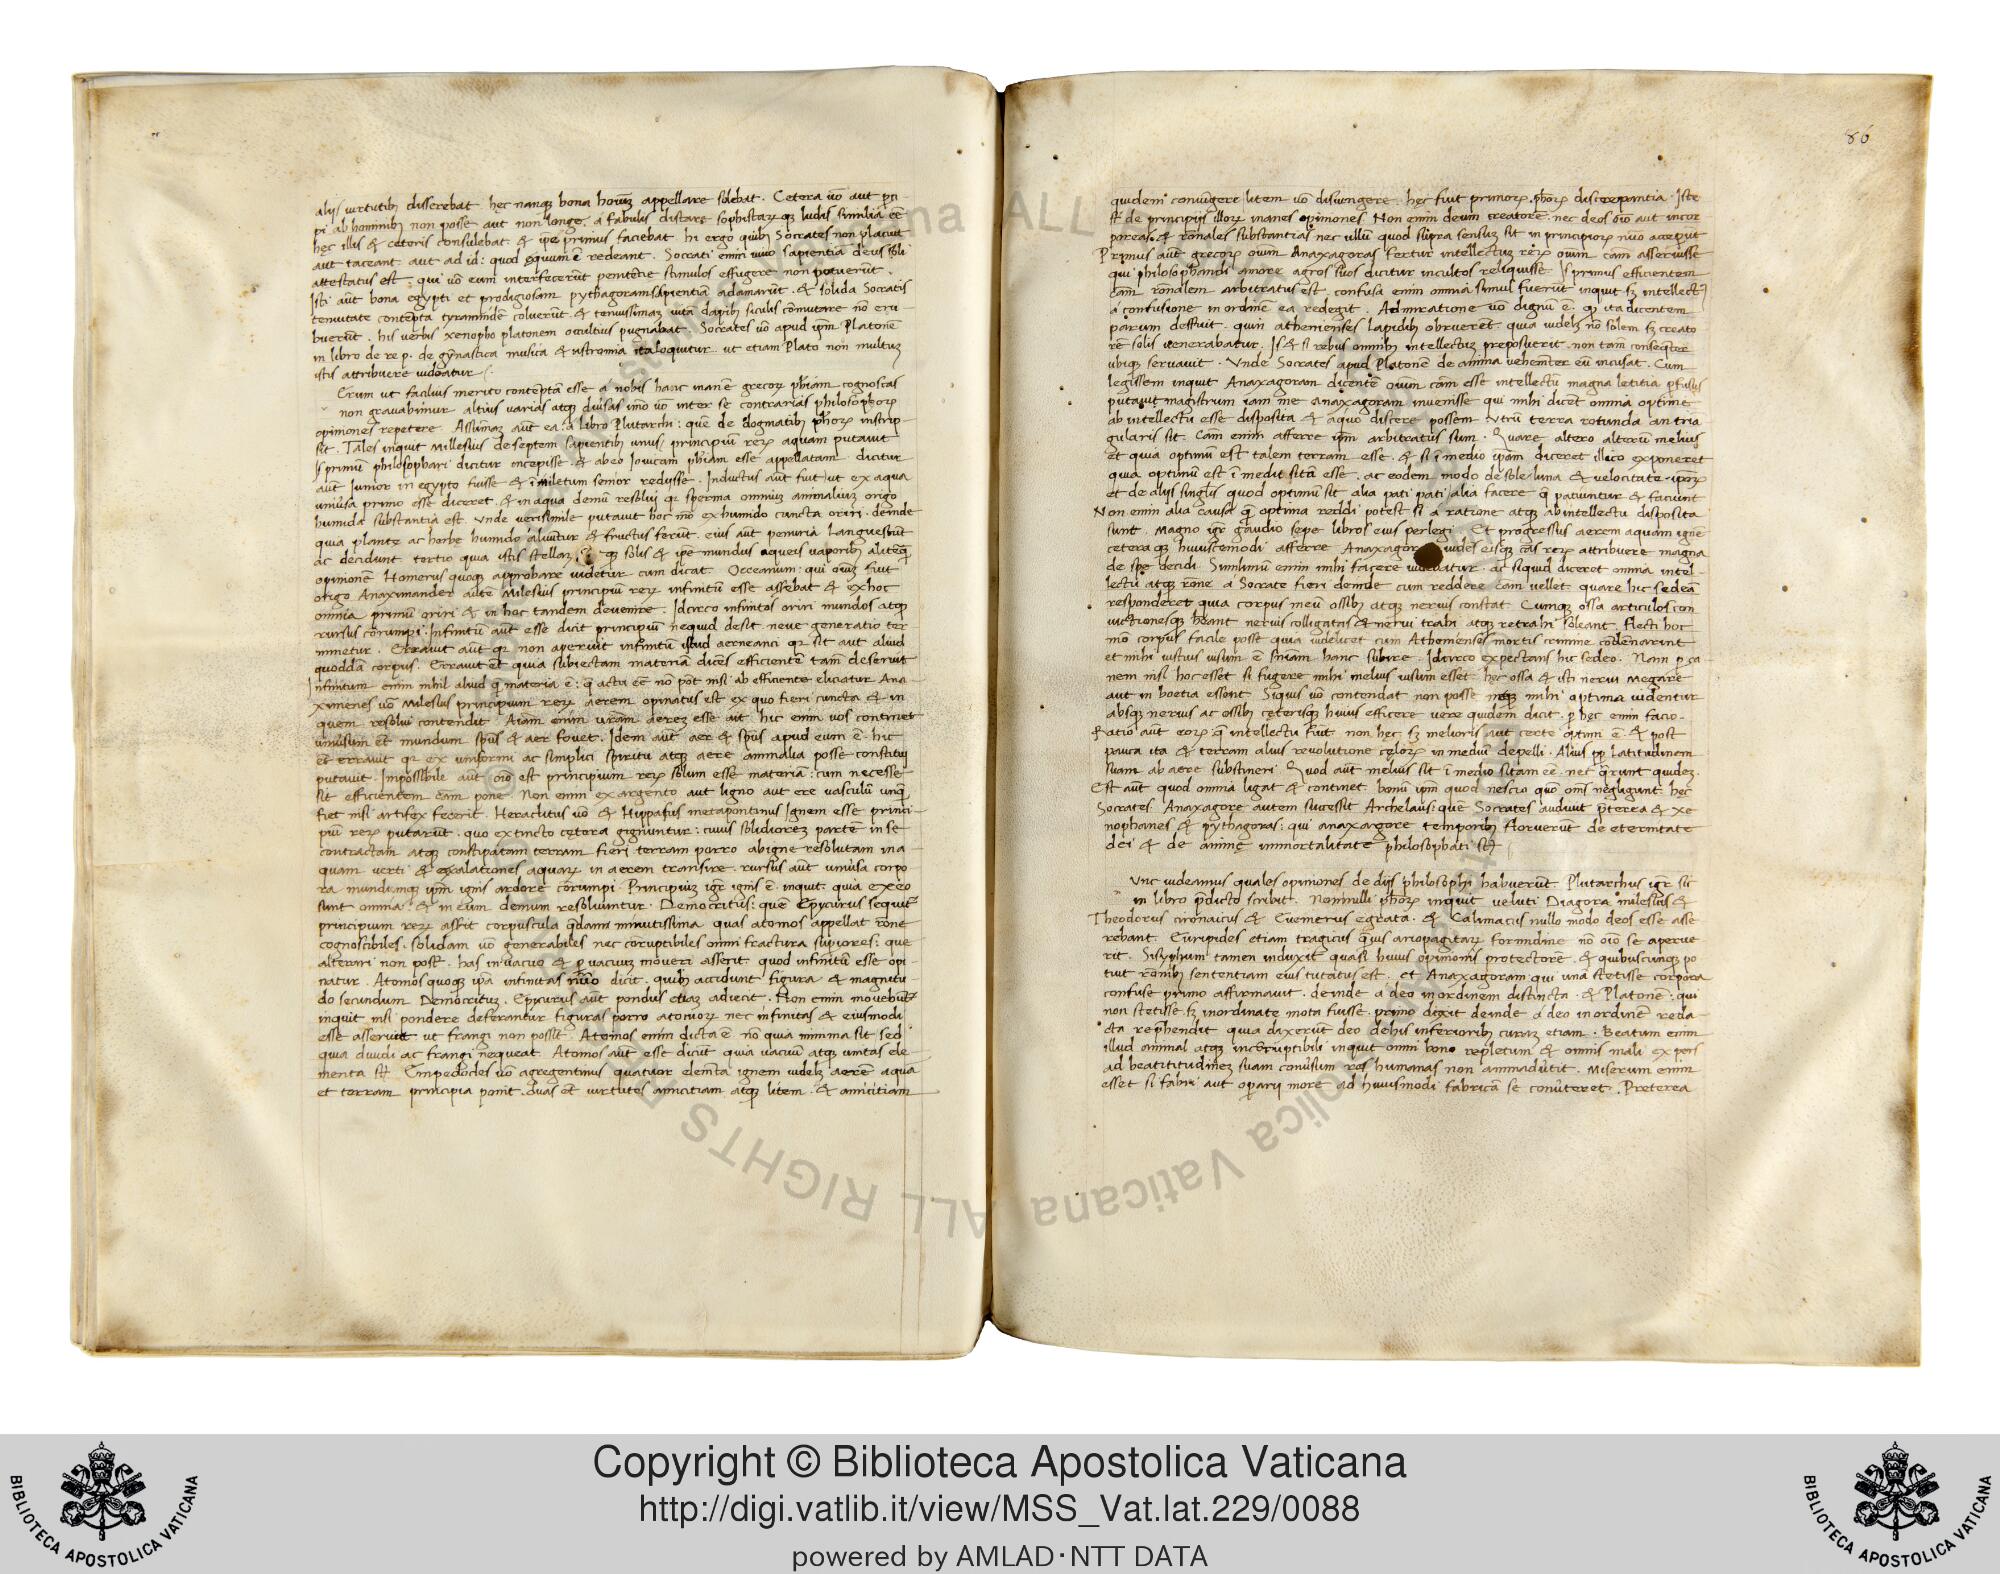 alijs virtutibꝫ disserebat hęc nanqꝫ bona hoıũ appellare solebat. Cetera uõ aut pci
pi ab hominibꝫ non posse aut non longe a fabulis distare sophistarꝫ qꝫ ludis similia eẽ
hęc illis & cęteris consulebat & ipe primus faciebat hi ergo quibꝫ Socrates non placuit
aut taceant aut ad id: quod equum ẽ redeant. Socrati enim uiuo sapientia deus soli
attestatus est: qui uõ eum interfecerũt penitẽtie stimulos effugere non potuerũt.
Isti aũt bona egypti et prodigiosam pythagoram sapientiã adamarũt & solida Socratis
tenuitate contẽpta tyrannidẽ coluerũt & tenuissimaꝫ uita dapibꝫ siculis cõmutare nõ eru
buerũt. his uerbis xenopho platonem occultius pugnabat. Socrates uõ apud ipm Platonẽ
in libro de re p. de gymnastica musica & astromia ita loquitur ut etiam Plato non multuꝫ
istis attribuere uideatur.
Erum ut facilius merito contẽptã esse a nobis hanc inanẽ grecorꝫ phiam cognoscas
non grauabimur altius varias atqꝫ diuersas imo uõ inter se contrarias philosophorꝫ
opiniones repetere. Assũmaꝫ aũt ea a libro Plutarchi: quẽ de dogmatibꝫ phorꝫ inscrip
sit. Tales inquit Milesius de septem sapientibꝫ unus principiũ rerꝫ aquam putauit
Is primũ philosophari dicitur incepisse & ab eo Ionicam phiam esse appellatam dicitur
aũt Iunior in egypto fuisse & ĩ miletum senior redysse. Inductus aũt fuit ut ex aqua
uniũsa primo esse diceret & in aqua demũ resolui qꝛ sperma omniuꝫ animaliuꝫ origo
humida substantia est. Vnde uerisimile putauit hoc mõ ex humido cuncta oriri. deinde
quia plantę ac herbę humido aluntur & fructus ferũt. eius aũt penuria languescũt
ac decidunt tertio quia istis stellarꝫ qꝫ solis & ipẽ mundus aqueis uaporibꝫ alitẽ
opinionẽ Homerus quoqꝫ approbare uidetur cum dicat. Occeanum: qui oiuꝫ fuit
origo Anaximander aũte Milesius principiũ rerꝫ infinitũ esse assebat & ex hoc
omnia primũ oriri & in hoc tandem deuenire. Idcirco infinitos oriri mundos atqꝫ
rursus corũmpi. Infinitũ aũt esse dicit principiũ nequid desit neue generatio ter
minetur. Errauit aũt qꝛ non aperuit infinitũ istud aerne anci qꝛ sit aut aliud
quoddã corpus. Errauit eẽt quia subiectam materiã dicẽs efficientẽ tam deseruit
Infinitum enim nihil aliud qꝫ materia ẽ: q̃ actu eẽ nõ põt nisi ab efficiente eliciatur Ana
ximenes uõ Milesius principium rerꝫ aerem opinatus est ex quo fieri cuncta & in
quem resolui contendit. Aiam enim uram aereꝫ esse ait. hic enim uos continet
uniũsum eẽt mundum spũs & aer fouet. Idem aũt aer & spũs apud eum ẽ. hic
et errauit qꝛ ex uniformi ac simplici spiritu atqꝫ aere animalia posse constitui
putauit. Impossibile aũt oĩo est principium rerꝫ solum esse materiã: cum necesse
sit efficientem cãm pone. Non enim ex argento aut ligno aut ere vasculũ unqꝫ
fiet nisi artifex fecerit. Heraclitus uõ & Hippasus metapontinus Ignem esse princi
piũ rerꝫ putarũt. quo extincto cętera gignuntur: cuius solidioreꝫ partẽ in se
contractam atqꝫ constipatam terram fieri terram porro ab igne resolutam in a
quam uerti & exalationes aquarꝫ in aerem transire. rursus aũt uniũsa corpo
ra mundumqꝫ ipm ignis ardore corrumpi. Principiuꝫ igr̃ ignis ẽ inquit: quia ex eo
sunt omnia: & in eum demum resoluuntur. Democritus: quẽ Epycurus sequit̃
principium rerꝫ assit corpuscula q̃dam minutissima quas atomos appellat rõne
cognoscibiles: solidam uõ generabiles nec corruptibiles omni fractura supiores: que
alterari non post. has in uacuo & p uacuuꝫ moueri asserit quod infinitũ esse opi
natur. Atomos quoqꝫ ipã infinitas nũo dicit. quibꝫ accidunt figura & magnitu
do secundum Democrituꝫ. Epycurus aũt pondus etiaꝫ adiecit. Non enim mouebũt̃
inquit nisi pondere deferantur figuras porro atomorꝫ nec infinitas & eiusmodi
esse asseruit ut frangi non possit. Atomos enim dicta ẽ. nõ quia minima sit sed
quia diuidi ac frangi nequeat. Atomos aũt esse dicũt quia vacuũ atqꝫ unitas ele
menta st. Empedocles uõ agregentinus quatuor elemẽta ignem uidelꝫ aerẽ aqua
et terram principia ponit. duas eẽt uirtutes amicitiam atqꝫ litem. & amicitiam
86
quidem conuĩgere litem uõ disiungere. hęc fuit primorꝫ phorꝫ discrepantia. Iste
st de principijs illorꝫ inanes opiniones. Non enim deum creatorẽ. nec deos oĩo aut incor
poreas & rõnales substantias nec ullũ quod supra sensus sit in principiorꝫ nũo accepũt
Primus aũt grecorꝫ oium Anaxagoras fertur intellectuꝫ rerꝫ oium cam asseruisse
qui philosophandi amore agros suos dicitur incultos reliquisse. Is primus efficientem
cãm rõnalem arbitratus est. confusa enim omnia simul fuerũt inquit sꝫ intellect
a confusione in ordinẽ ea redegit. Admiratione uõ dignũ ẽ. qꝫ ita dicentem
parum deffuit quin athenienses Lapidibꝫ obrueret. quia uidelꝫ nõ solem sꝫ creato
rẽ solis uenerabatur. Is & si rebus omnibꝫ intellectuꝫ preposuerit. non tam conseqꝫter
ubiqꝫ seruauit. Vnde Socrates apud Platonẽ de anima vehemẽter eũ incusat. Cum
legissem inquit Anaxagoram dicentẽ oium cam esse intellectũ magna letitia pfusus
putaui magistrum iam me Anaxagoram inuenisse qui mihi dicet omnia optime
ab intellectu esse disposita & a quo discere possem vtrũ terra rotunda an triã
gularis sit. Cam enim afferre ipm arbitratus sum. Quare altero alterũ melius
et quia optimũ est talem terram esse. & si ĩ medio ipam diceret illico exponeret
quia optimũ est ĩ medio sitã esse. ac eodem modo de sole luna & uelocitate ipoꝫ
et de alijs singlis quod optimũ sit alia pati pati alia facere q̃ patiuntur & faciunt
Non enim alia causa q̃ optima reddi potest si a ratione atqꝫ ab intellectu disposita
sunt. Magno igr̃ gaudio sepe libros eius perlegi. Et progressus aerem aquam ignẽ
cetera qꝫ huiuscemodi afferre Anaxagora uides eisqꝫ cãs rerꝫ attribuere magna
de spe decidi. Similimũ enim mihi facere uidebatur. ac siquid diceret omnia intel
lectu atqꝫ rõne a Socrate fieri deinde cum reddere cãm vellet quare hic sedeã
responderet quia corpus meũ ossibꝫ atqꝫ neruis constat. Cumqꝫ ossa articulos con
iũctionesqꝫ hẽant neruis colligatas & nerui trahi atqꝫ retrahi soleant. flecti hoc
mõ corpus facile posse quia uidelicet cum Athenienses mortis crimine condẽnarint
et mihi iustius uisum ẽ sniam hanc subire. Idcirco expectans hic sedeo. Nam p ca
nem nisi hoc esset si fugere mihi melius uisum esset hęc ossa & isti nerui Megare
aut in boetia essent. Siquis uõ contendat non posse mihi optima uidentur
absqꝫ neruis ac ossibꝫ cęterisqꝫ huius efficere uere quidem dicit. p hęc enim facio.
Ratio aũt eorꝫ q̃ intellectu fiũt non hęc sꝫ melioris aut certe optimi ẽ & post
pauca ita & terram alius reuolutione cęlorꝫ in mediũ depelli. Alius pp Latitudinem
suam ab aere substineri. Quod aũt melius sit ĩ medio sitam eẽ. nec q̃runt quideꝫ.
Est aũt quod omnia ligat & continet bonũ ipm quod nescio quo oms negligunt hęc
Socrates. Anaxagore autem sucessit Archelaus: quẽ Socrates audiuit pterea & xe
nophanes & pythagoras: qui anaxargore temporibꝫ floruerũt de eternitate
dei & de animę immortalitate philosophati st
Vnc uideamus quales opiniones de dijs philosophi habuerũt. Plutarchus igr̃ sic
in libro p̃dicto scribit. Nonnulli phorꝫ inquit ueluti Diagora milesius &
Theodorus cironaicus & Euemerus egeata. & Calimacus nullo modo deos esse asse
rebant. Euripides etiam tragicus q̃uis ariopagitarꝫ formidine nõ oĩo se aperue
rit. Sisyphum tamen induxit quasi huius opinionis protectorẽ. & quibuscunqꝫ po
tuit rõnibꝫ sententiam eius tutatus est. et Anaxagoram: qui una stetisse corpora
confuse primo affirmauit. deinde a deo in ordinem distincta. & Platonẽ: qui
non stetisse sꝫ inordinate mota fuisse. primo dixit deinde a deo in ordinẽ reda
cta rep̃hendit quia daxerũt deo debis inferioribꝫ curaꝫ etiam. Beatum enim
illud animal atqꝫ incorruptibili inquit omni bono repletum & omnis mali expers
ad beatitudineꝫ suam conũsum res humanas non animaduẽtit. Miserum enim
esset si fabri aut operij more ad huiusmodi fabricã se conũteret. Preterea
Copyright © Biblioteca Apostolica Vaticana
http://digi.vatlib.it/view/MSS_Vat.lat.229/0088
powered by AMLAD·NTT DATA
BIBLIOTECA APOSTOLICA VATICANA
BIBLIOTECA APOSTOLICA VATICANA